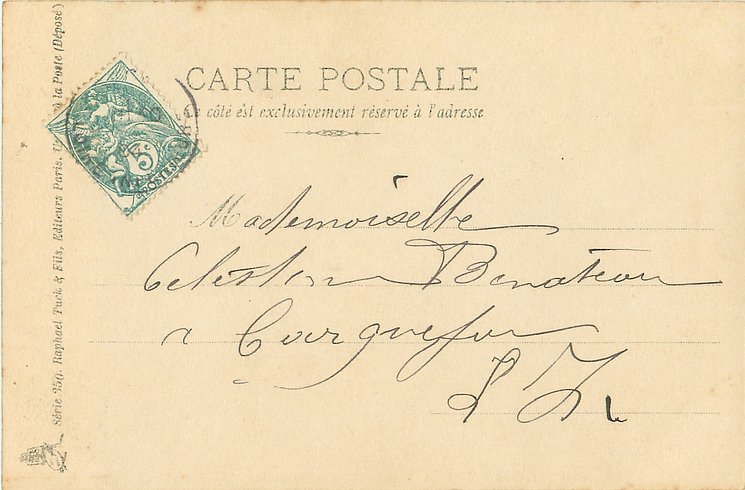 CARTE POSTALE
Ce côté est exclusivement réservé à l'adresse
5c
POSTES
Mademoiselle
Celestine
a Carquefou
L. I
Série 950. Raphael Tuck & Fils, Editeurs Paris, à la Poste (Déposé)